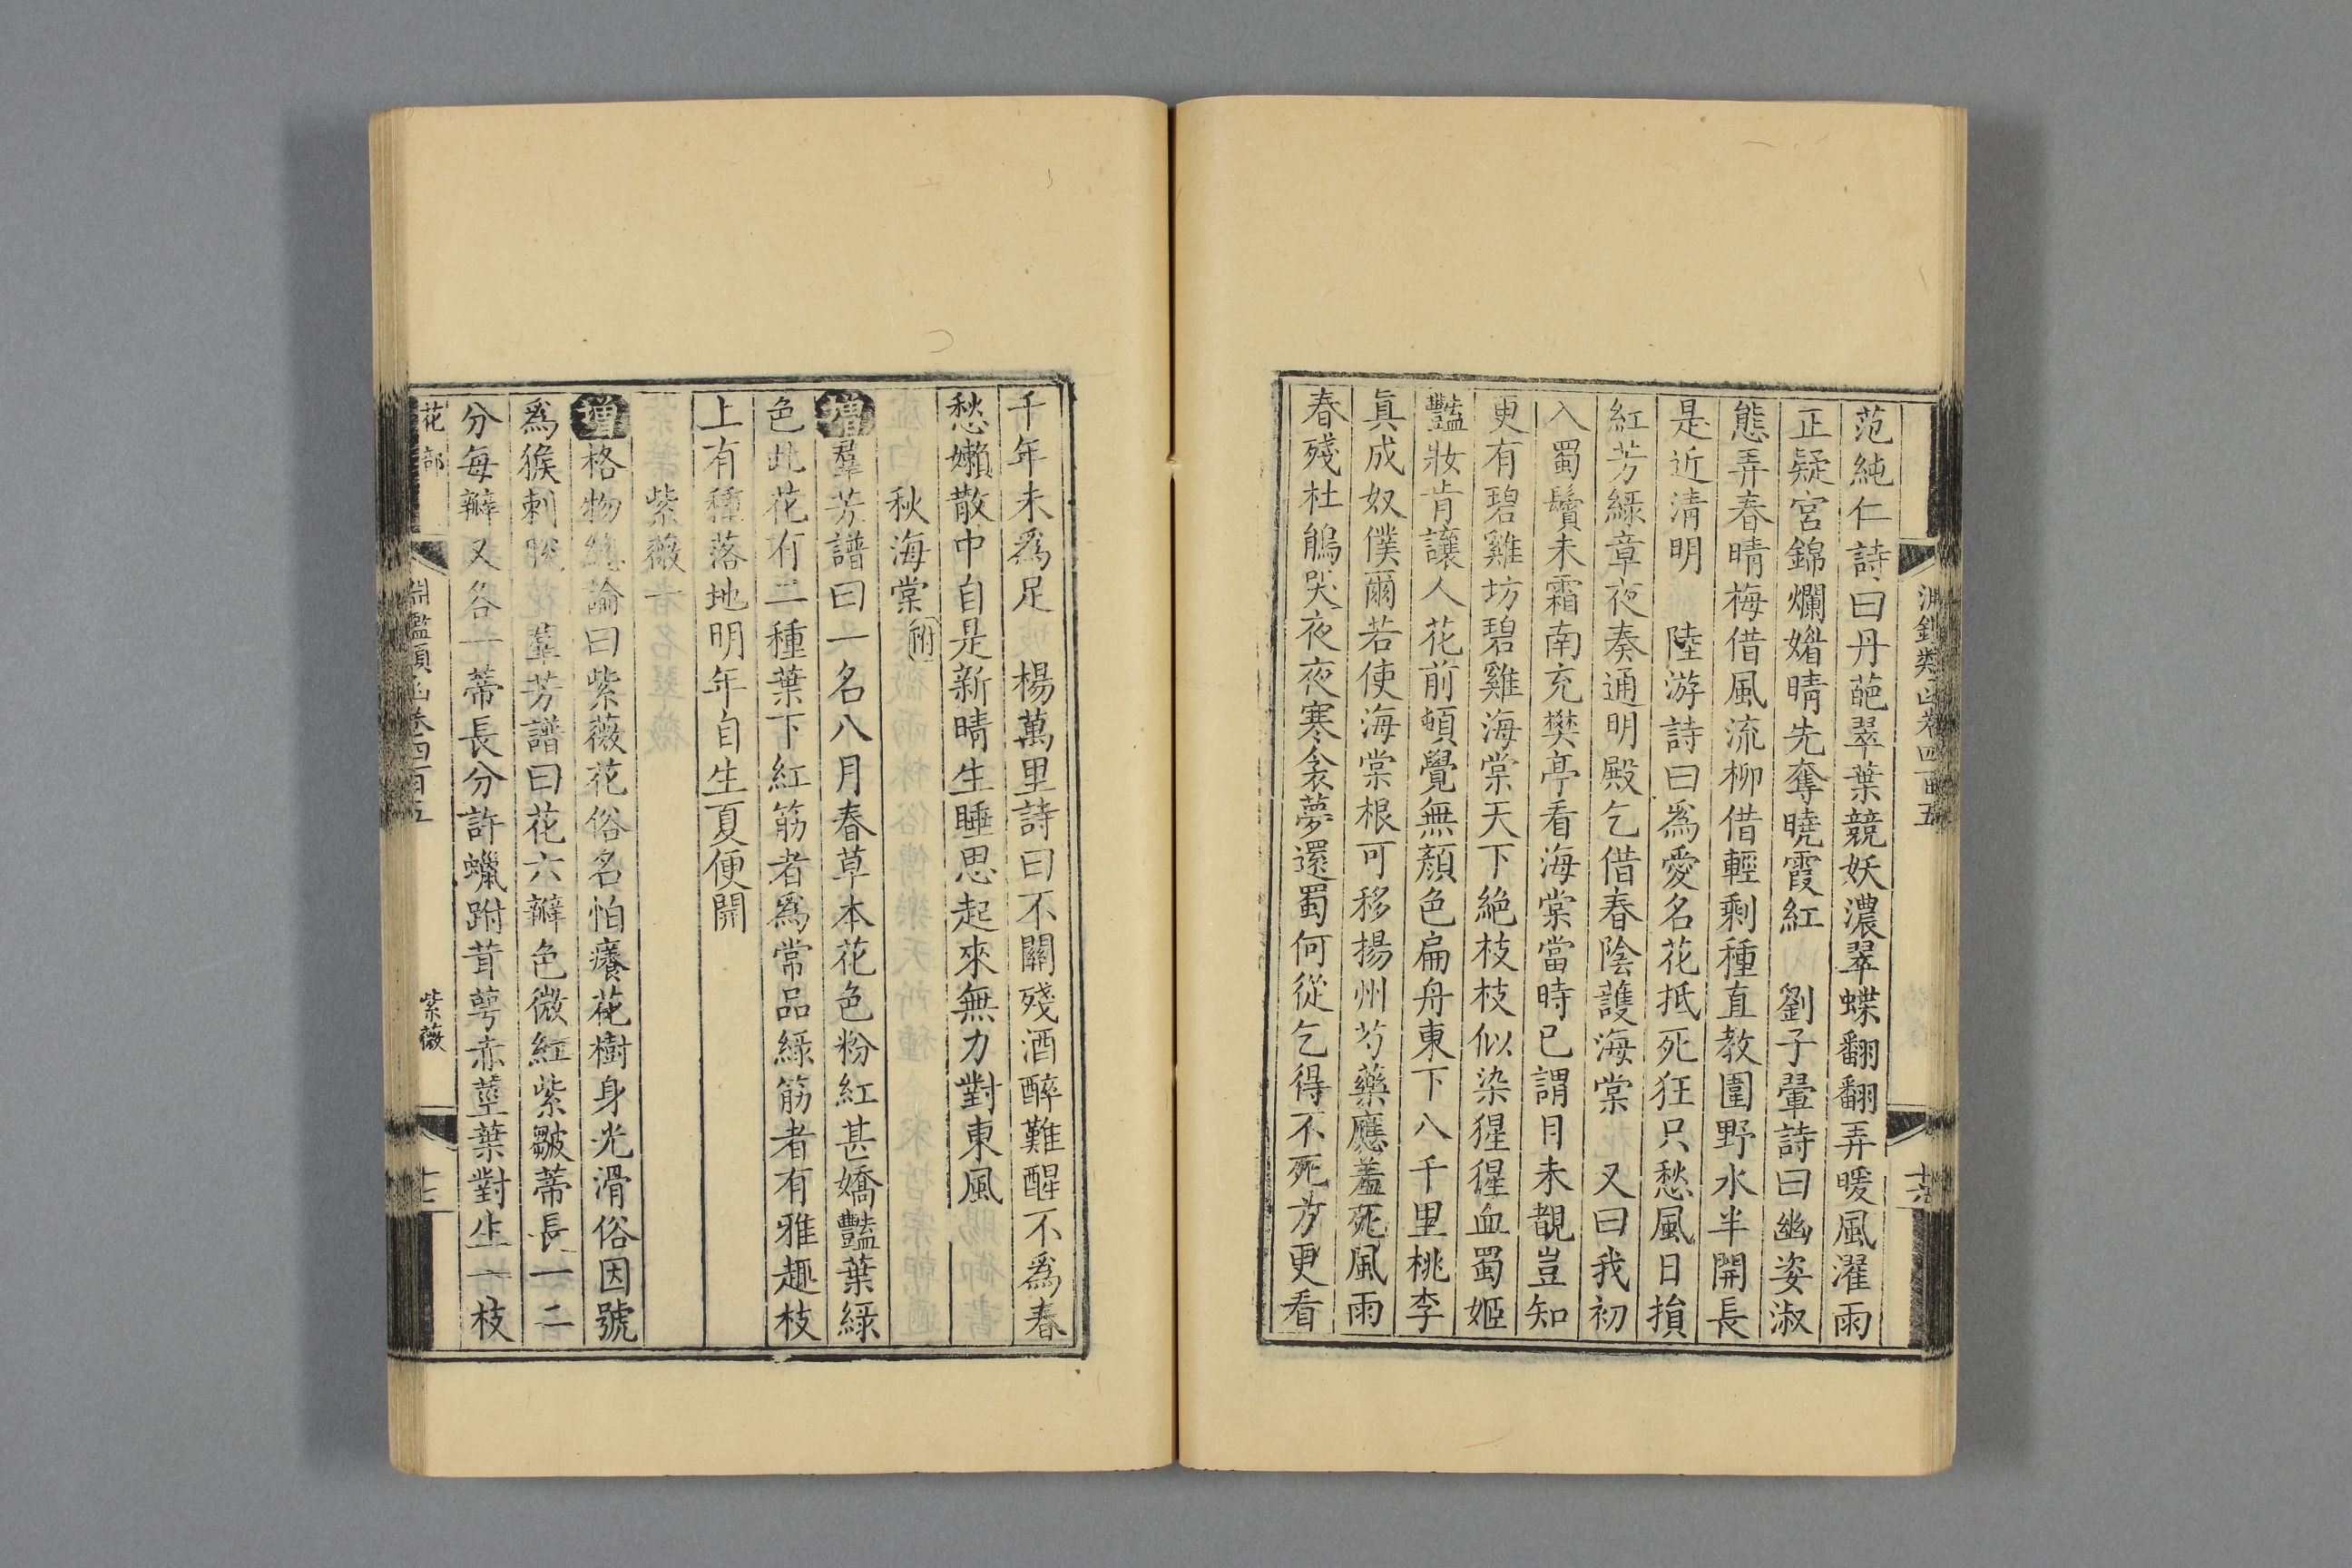 淵鑑類函卷四百五
十六
范純仁詩曰丹葩翠葉競妖濃翠蝶翻翻弄暖風濯雨
正疑宮錦爛媚晴先奪曉霞紅　劉子翬詩曰幽姿淑
態弄春晴梅借風流柳借輕剩種直教圍野水半開長
是近清明　陸游詩曰爲愛名花抵死狂只愁風日損
紅芳綠章夜奏通明殿乞借春陰護海棠　又曰我初
入蜀鬢未霜南充樊亭看海棠當時已謂目未覩豈知
更有碧雞坊碧雞海棠天下絕枝枝似染猩猩血蜀姬
豔妝肯讓人花前頓覺無顏色扁舟東下八千里桃李
眞成奴僕爾若使海棠根可移揚州芍藥應羞死風雨
春殘杜鵑哭夜夜寒衾夢還蜀何從乞得不死方更看
千年未爲足　楊萬里詩曰不關殘酒醉難醒不爲春
愁嬾散中自是新晴生睡思起來無力對東風
秋海棠附
增羣芳譜曰一名八月春草本花色粉紅甚嬌豔葉綠
色此花有二種葉下紅筋者爲常品綠筋者有雅趣枝
上有種落地明年自生夏便開
紫薇一
增格物總論曰紫薇花俗名怕癢花樹身光滑俗因號
爲猴刺脫　羣芳譜曰花六瓣色微紅紫皺蒂長一二
分每瓣又各一蒂長分許蠟跗茸萼赤莖葉對生一枝
花部
淵鑑類函卷四百五
紫薇
十七